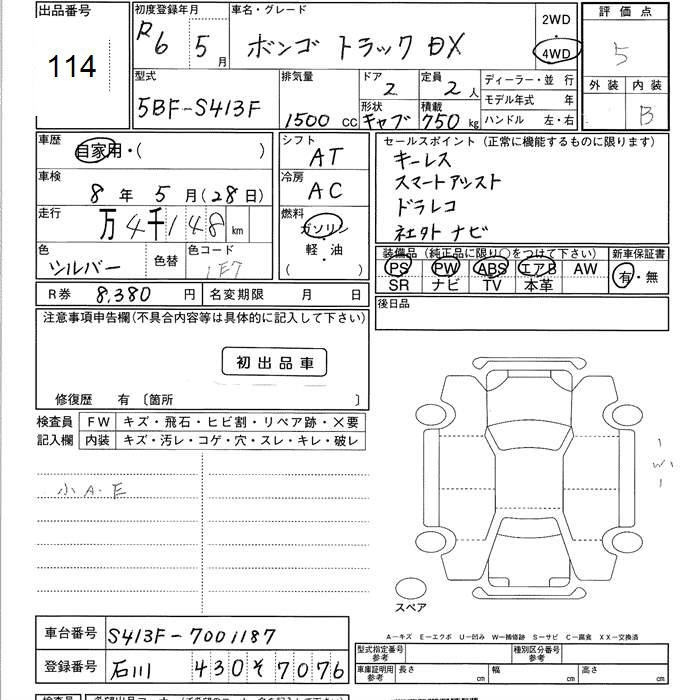 出品番号
114
初度登録年月
R6 5月
車名・グレード
ボンゴ トラック DX
2WD
4WD
評価点
5
外装 内装
B
型式
5BF-S413F
排気量
1500 cc
ドア
2
定員
2人
形状
キャブ
積載
750kg
ディーラー・並 行
モデル年式 年
ハンドル 左・右
車歴
自家用・( )
車検
8年 5月(28日)
走行
万4千148km
色
シルバー
色替
色コード
1E7
シフト
AT
冷房
AC
燃料
ガソリン
軽・油
( )
セールスポイント (正常に機能するものに限ります)
キーレス
スマートアシスト
ドラレコ
社外ナビ
装備品 (純正品に限り○をつけて下さい)
PS PW ABS エアB AW
SR ナビ TV 本革
新車保証書
有・無
R券 8,380 円
名変期限 月 日
後日品
注意事項申告欄(不具合内容等は具体的に記入して下さい)
初出品車
修復歴 有 〔箇所 〕
検査員
記入欄
FW キズ・飛石・ヒビ割・リペア跡・×要
内装 キズ・汚レ・コゲ・穴・スレ・キレ・破レ
小A.E
W1
スペア
車台番号 S413F-7001187
登録番号 石川 430 そ 7076
A−キズ E−エクボ U−凹み W−補修跡 S−サビ C−腐食 XX−交換済
型式指定番号
参考
種別区分番号
参考
車庫証明用
参考
長さ cm
幅 cm
高さ cm